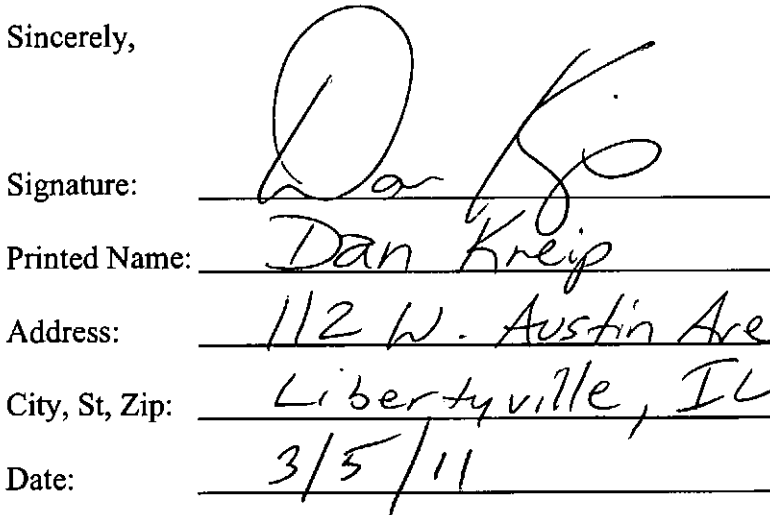 Sincerely,
Signature: Dan
Printed Name: Dan Kreip
Address: 112 W. Austin Ave
City, St, Zip: Libertyville, IL
Date: 3/5/11